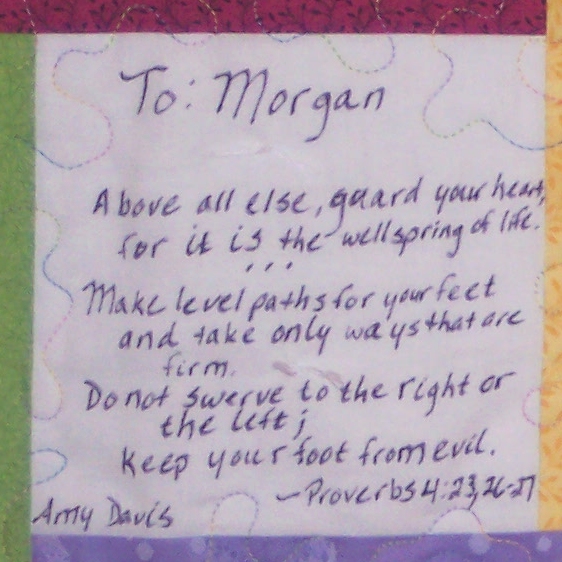 To: Morgan
Above all else, guard your heart,
for it is the wellspring of life.
...
Make level paths for your feet
and take only ways that are
firm.
Do not swerve to the right or
the left;
keep your foot from evil.
-Proverbs 4:23,26-27
Amy Davis